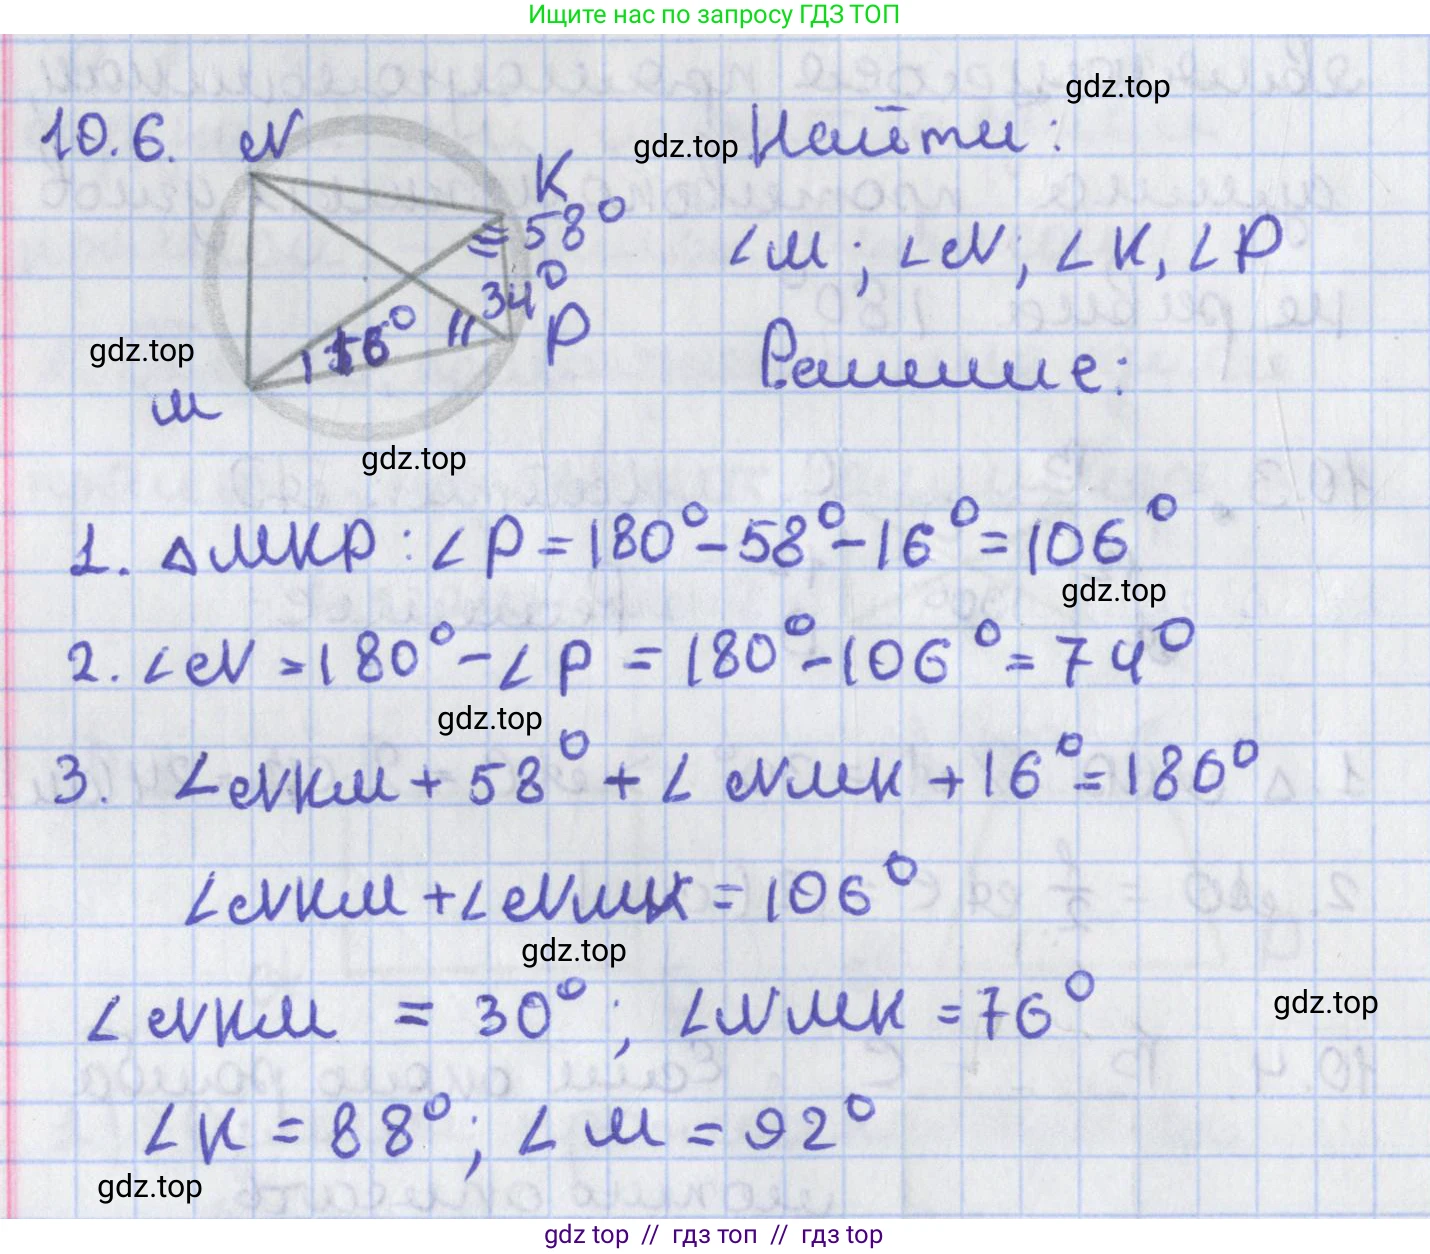 Ищите нас по запросу ГДЗ ТОП
gdz.top
10.6. N
gdz.top
Найти:
K
58°
∠M; ∠N; ∠K, ∠P
34°
16°
P
gdz.top
Решение:
M
gdz.top
1. △MKP: ∠P = 180° - 58° - 16° = 106°
gdz.top
2. ∠N = 180° - ∠P = 180° - 106° = 74°
gdz.top
3. ∠NKM + 58° + ∠NMK + 16° = 180°
∠NKM + ∠NMK = 106°
gdz.top
∠NKM = 30°; ∠NMK = 76°
gdz.top
∠K = 88°; ∠M = 92°
gdz.top
gdz top // гдз топ // gdz top